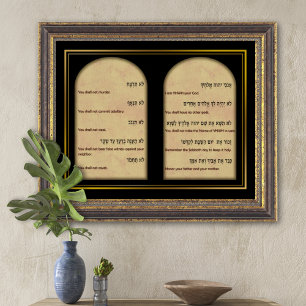 אנכי יהוה אלהיך
I am YHWH your God.
לא יהיה לך אלהים אחרים
You shall have no other gods.
לא תשא את שם יהוה אלהיך לשוא
You shall not take the Name of YHWH in vain.
זכור את יום השבת לקדשו
Remember the Sabbath day to keep it holy
כבד את אביך ואת אמך
Honor your father and your mother
לא תרצח
You shall not murder.
לא תנאף
You shall not commit adultery.
לא תגנב
You shall not steal.
לא תענה ברעך עד שקר
You shall not bear false witness against your
neighbor.
לא תחמד
You shall not covet.